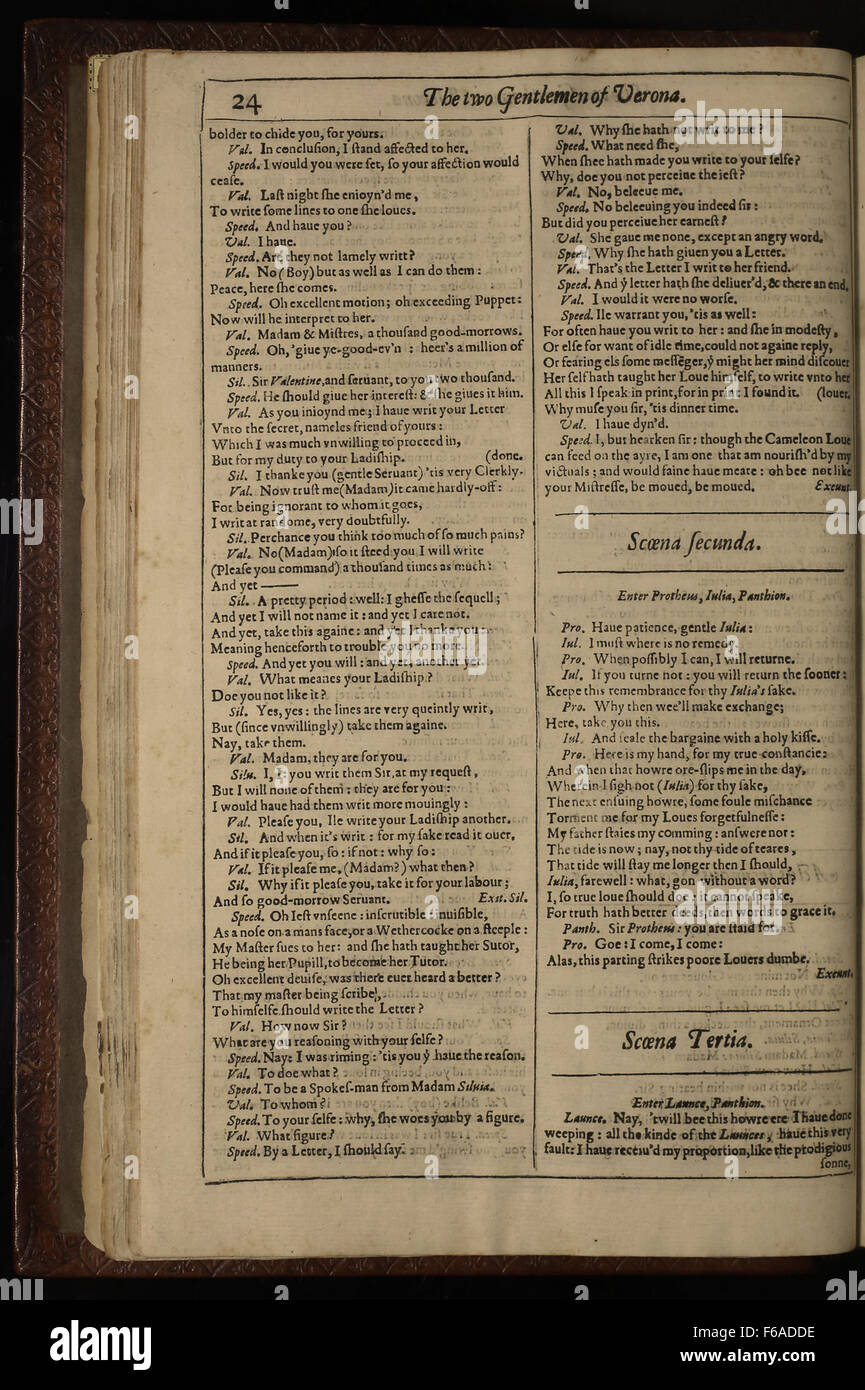 24
The two Gentlemen of Verona.
bolder to chide you, for yours.
Val. In conclusion, I ſtand affected to her.
Speed. I would you were ſet, ſo your affection would
ceaſe.
Val. Laſt night ſhe enioyn'd me,
To write ſome lines to one ſhe loues.
Speed. And haue you?
Val. I haue.
Speed. Are they not lamely writt?
Val. No (Boy) but as well as I can do them:
Peace, here ſhe comes.
Speed. Oh excellent motion; oh exceeding Puppet:
Now will he interpret to her.
Val. Madam & Miſtres, a thouſand good-morrows.
Speed. Oh, 'giue ye-good-ev'n : heer's a million of
manners.
Sil. Sir Valentine, and ſeruant, to you two thouſand.
Speed. He ſhould giue her intereſt: & ſhe giues it him.
Val. As you inioynd me; I haue writ your Letter
Vnto the ſecret, nameles friend of yours:
Which I was much vnwilling to proceed in,
But for my duty to your Ladiſhip. (done.
Sil. I thanke you (gentle Seruant) 'tis very Clerkly-
Val. Now truſt me (Madam) it came hardly-off:
For being ignorant to whom it goes,
I writ at randome, very doubtfully.
Sil. Perchance you think too much of ſo much pains?
Val. No (Madam) ſo it ſteed you I will write
(Pleaſe you command) a thouſand times as much:
And yet ——
Sil. A pretty period: well: I gheſſe the ſequell;
And yet I will not name it: and yet I care not.
And yet, take this againe: and yet I thanke you:
Meaning henceforth to trouble you no more.
Speed. And yet you will: and yet, another yet.
Val. What meanes your Ladiſhip?
Doe you not like it?
Sil. Yes, yes: the lines are very queintly writ,
But (ſince vnwillingly) take them againe.
Nay, take them.
Val. Madam, they are for you.
Silu. I, I: you writ them Sir, at my requeſt,
But I will none of them: they are for you:
I would haue had them writ more mouingly:
Val. Pleaſe you, Ile write your Ladiſhip another.
Sil. And when it's writ: for my ſake read it ouer,
And if it pleaſe you, ſo: if not: why ſo:
Val. If it pleaſe me, (Madam?) what then?
Sil. Why if it pleaſe you, take it for your labour;
And ſo good-morrow Seruant. Exit. Sil.
Speed. Oh Ieſt vnſeene: inſcrutible: inuiſible,
As a noſe on a mans face, or a Wethercocke on a ſteeple:
My Maſter ſues to her: and ſhe hath taught her Sutor,
He being her Pupill, to become her Tutor.
Oh excellent deuiſe, was there euer heard a better?
That my maſter being ſcribe,
To himſelfe ſhould write the Letter?
Val. How now Sir?
What are you reaſoning with your ſelfe?
Speed. Nay: I was riming: 'tis you ẏ haue the reaſon.
Val. To doe what?
Speed. To be a Spokeſ-man from Madam Siluia.
Val. To whom?
Speed. To your ſelfe: why, ſhe woes you by a figure.
Val. What figure?
Speed. By a Letter, I ſhould ſay.
Val. Why ſhe hath not writ to me?
Speed. What need ſhe,
When ſhee hath made you write to your ſelfe?
Why, doe you not perceiue the ieſt?
Val. No, beleeue me.
Speed. No beleeuing you indeed ſir:
But did you perceiue her earneſt?
Val. She gaue me none, except an angry word.
Speed. Why ſhe hath giuen you a Letter.
Val. That's the Letter I writ to her friend.
Speed. And ẏ letter hath ſhe deliuer'd, & there an end.
Val. I would it were no worſe.
Speed. Ile warrant you, 'tis as well:
For often haue you writ to her: and ſhe in modeſty,
Or elſe for want of idle time, could not againe reply,
Or fearing els ſome meſſẽger, ẏ might her mind diſcouer
Her ſelf hath taught her Loue himſelf, to write vnto her
All this I ſpeak in print, for in print I found it. (louer.
Why muſe you ſir, 'tis dinner time.
Val. I haue dyn'd.
Speed. I, but hearken ſir: though the Cameleon Loue
can feed on the ayre, I am one that am nouriſh'd by my
victuals; and would faine haue meate: oh bee not like
your Miſtreſſe, be moued, be moued. Exeunt.
Scœna ſecunda.
Enter Protheus, Iulia, Panthion.
Pro. Haue patience, gentle Iulia:
Iul. I muſt where is no remedy.
Pro. When poſſibly I can, I will returne.
Iul. If you turne not: you will return the ſooner:
Keepe this remembrance for thy Iulia's ſake.
Pro. Why then wee'll make exchange;
Here, take you this.
Iul. And ſeale the bargaine with a holy kiſſe.
Pro. Here is my hand, for my true conſtancie:
And when that howre ore-ſlips me in the day,
Wherein I ſigh not (Iulia) for thy ſake,
The next enſuing howre, ſome foule miſchance
Torment me for my Loues forgetfulneſſe:
My father ſtaies my comming: anſwere not:
The tide is now; nay, not thy tide of teares,
That tide will ſtay me longer then I ſhould,
Iulia, farewell: what, gon without a word?
I, ſo true loue ſhould doe: it cannot ſpeake,
For truth hath better deeds, then words to grace it.
Panth. Sir Protheus: you are ſtaid for.
Pro. Goe: I come, I come:
Alas, this parting ſtrikes poore Louers dumbe.
Exeunt.
Scœna Tertia.
Enter Launce, Panthion.
Launce. Nay, 'twill bee this howre ere I haue done
weeping: all the kinde of the Launces, haue this very
fault: I haue receiu'd my proportion, like the prodigious
ſonne,
alamy
a
alamy
Image ID: F6ADDE
www.alamy.com